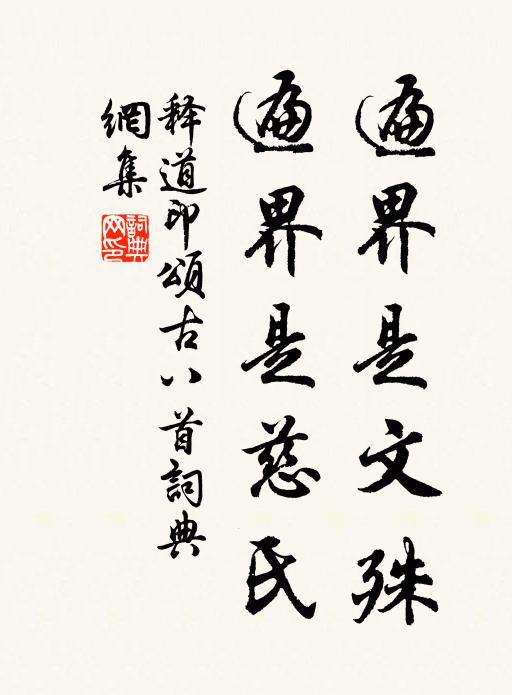 遍界是文殊
遍界是慈氏
释道印頌古八首詞典
網集
詞典網印